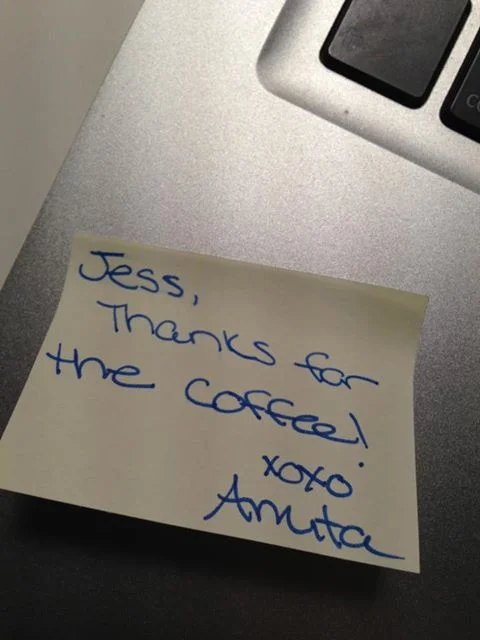 Jess,
Thanks for
the coffee!
xoxo